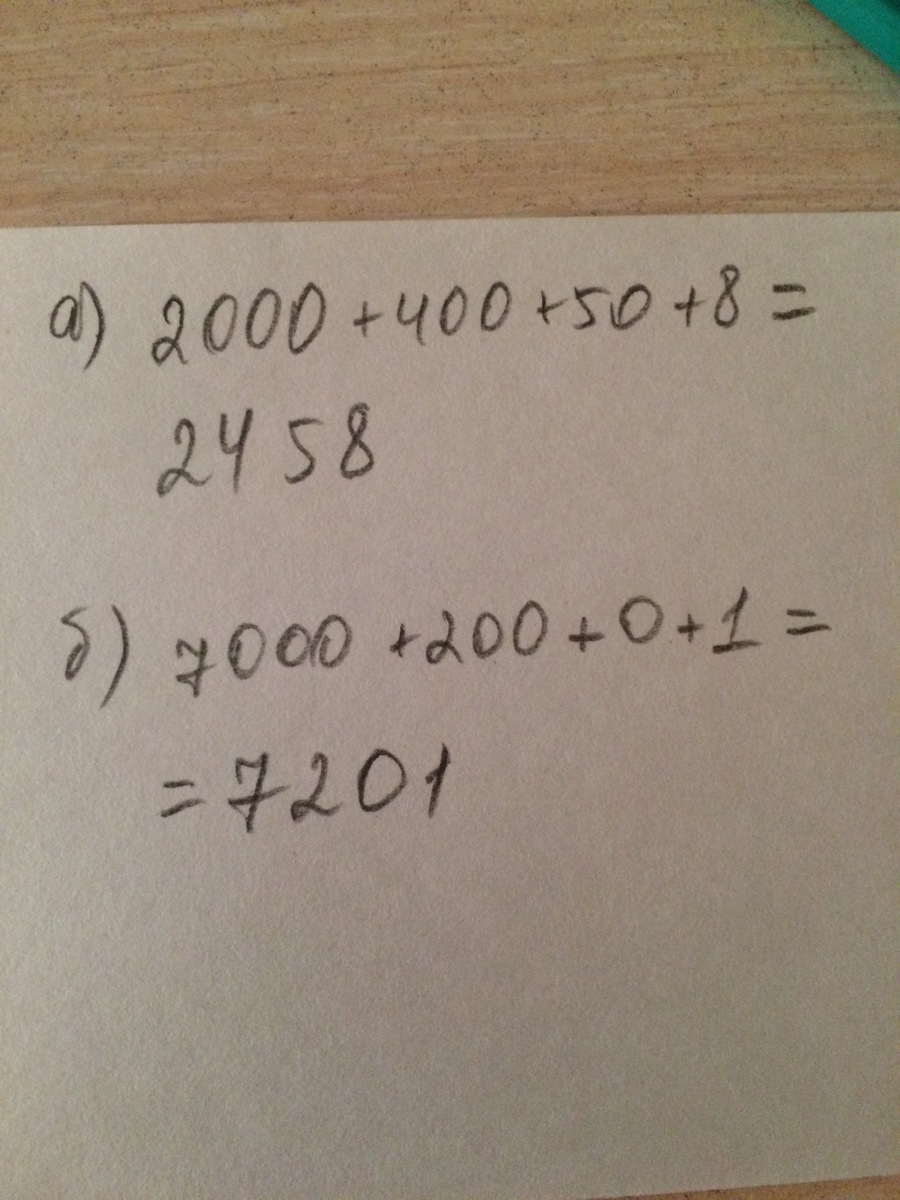 а) 2000 + 400 + 50 + 8 =
2458
б) 7000 + 200 + 0 + 1 =
= 7201